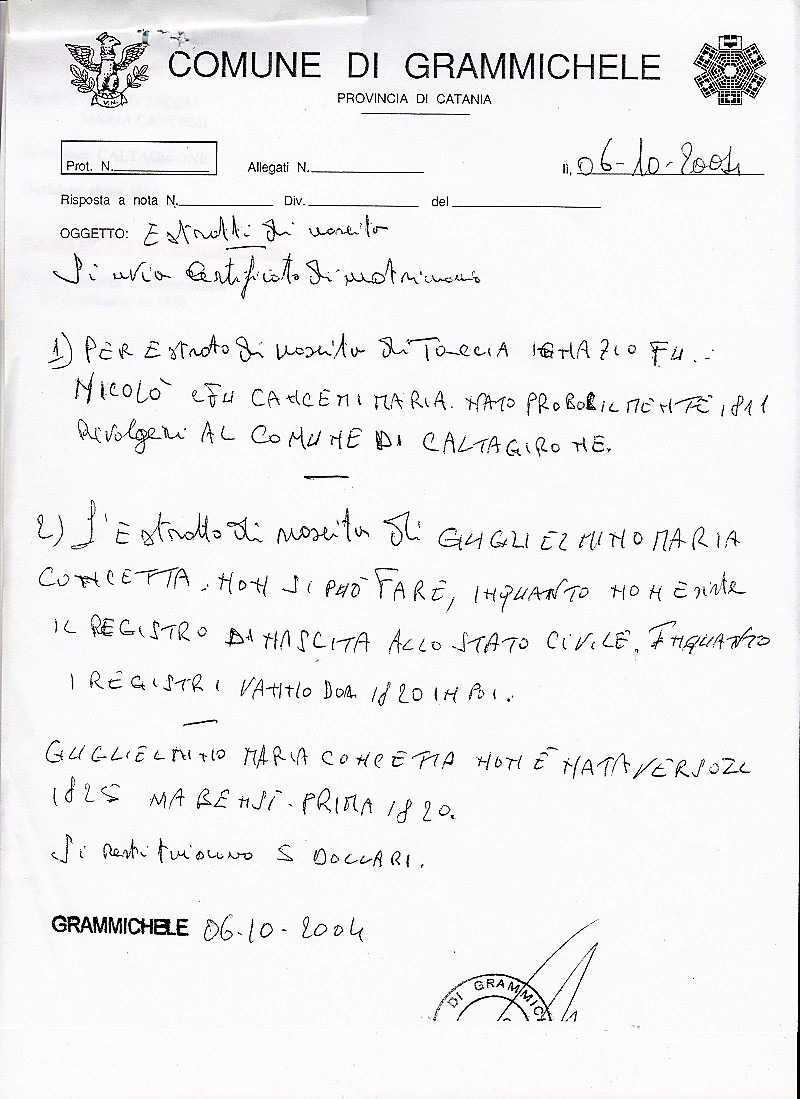 COMUNE DI GRAMMICHELE
PROVINCIA DI CATANIA
Prot. N.
Allegati N.
lì, 06-10-2004
Risposta a nota N. Div. del
OGGETTO: Estratti di nascita
Si invia Certificato di matrimonio
1) PER Estratto di nascita di IGNAZIO FU
NICOLÒ e FU CANCEMI MARIA. NATO PROBABILMENTE 1811
Rivolgersi AL COMUNE DI CALTAGIRONE.
2) L'Estratto di nascita di GUGLIELMINO MARIA
CONCETTA. NON SI PUÒ FARE, INQUANTO NON Esiste
IL REGISTRO DI NASCITA ALLO STATO CIVILE. INQUANTO
I REGISTRI VANNO DAL 1820 IN POI.
GUGLIELMINO MARIA CONCETTA NON È NATA VERSO IL
1825 MA BENSÌ - PRIMA 1820.
Si restituiscono 5 DOLLARI.
GRAMMICHELE 06-10-2004
DI GRAMMICH